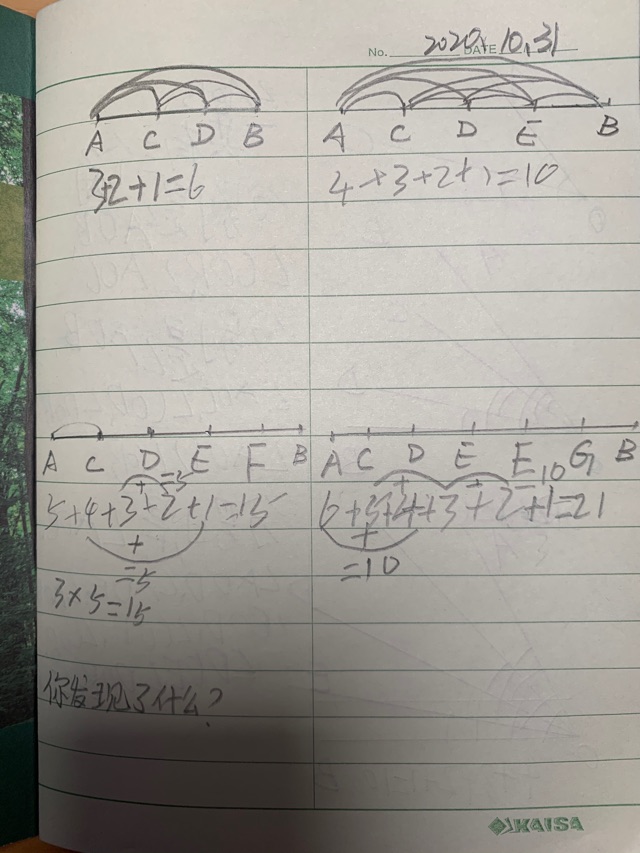 No. 2020. DATE 10.31
A C D B
3+2+1=6
A C D E B
4+3+2+1=10
A C D E F B
+ =5
5+4+3+2+1=15
+
=5
3×5=15
A C D E F G B
+ + =10
6+5+4+3+2+1=21
+
=10
你发现了什么?
KAISA